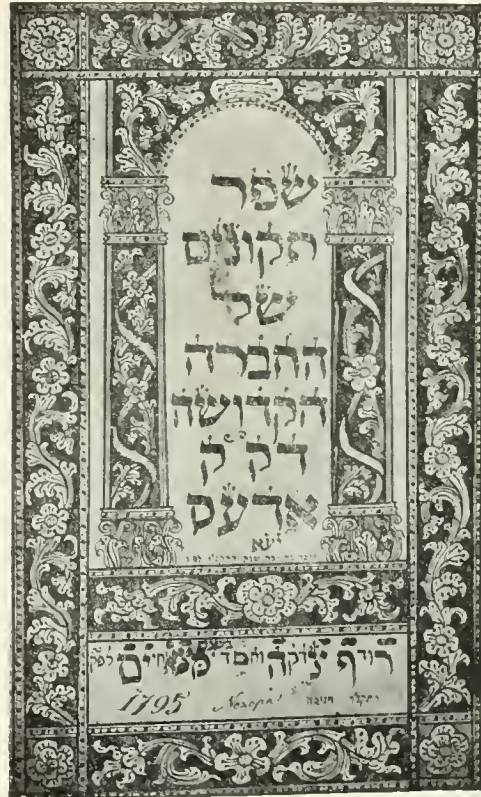 שפר
תקונים
של
החברה
הקדושה
דק"ק
אדעס
יע"א
רודף צדקה וחסד ימצא חיים לפק
1795